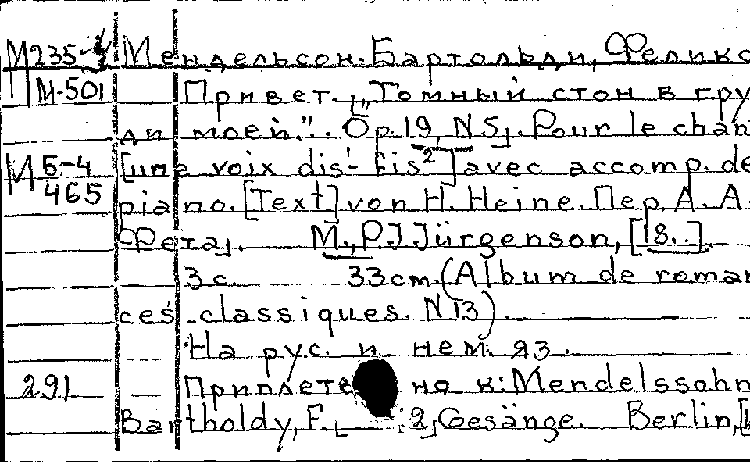 М235-4 Мендельсон-Бартольди, Феликс
М-501 Привет. „Томный стон в гру
ди моей". Op. 19, N 5. Pour le chant
М 5-4 [une voix dis'- fis²] avec accomp. de
465 piano. [Text] von H. Heine. Пер. А. А.
Фета. М., P. I. Jürgenson, [18..].
3 с. 33 cm. (Album de roman
ces classiques. N 13).
На рус. и нем. яз.
291 Приплетено к: Mendelssohn
Bartholdy, F. 2 Gesänge. Berlin,